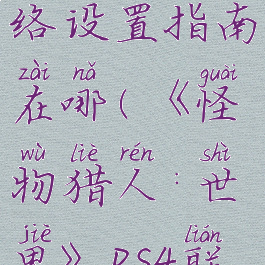 络设置指南
zài nǎ guài
在哪(《怪
wù liè rén shì
物猎人：世
jiè lián
界》PS4联